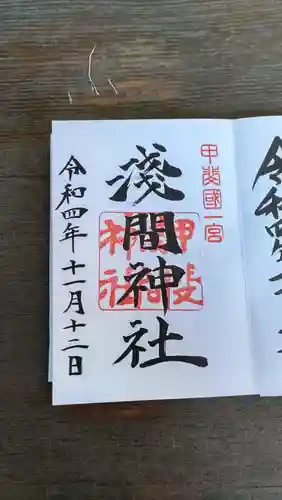 甲斐國一宮
淺間神社
令和四年十一月十二日
令和四年